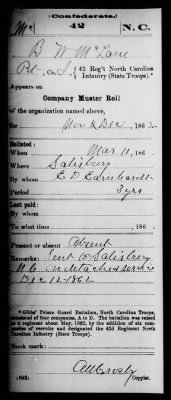 Confederate.
Mc 42 N.C.
B W McLane
Pvt, Co. 42 Reg't North Carolina
Infantry (State Troops).*
Appears on
Company Muster Roll
of the organization named above,
for Nov & Dec, 1862.
Enlisted:
When Mar 11, 186
Where Salisbury
By whom E D Earnhardt
Period 3 yrs
Last paid:
By whom
To what time , 186 .
Present or absent Absent
Remarks: Sent to Salisbury
N C on detached service
Dec 12 - 1862
*Gibbs' Prison Guard Battalion, North Carolina Troops,
consisted of four companies, A to D. The battalion was raised
to a regiment about May, 1862, by the addition of six com-
panies of recruits and designated the 42d Regiment North
Carolina Infantry (State Troops).
Book mark:
(642) Copyist.